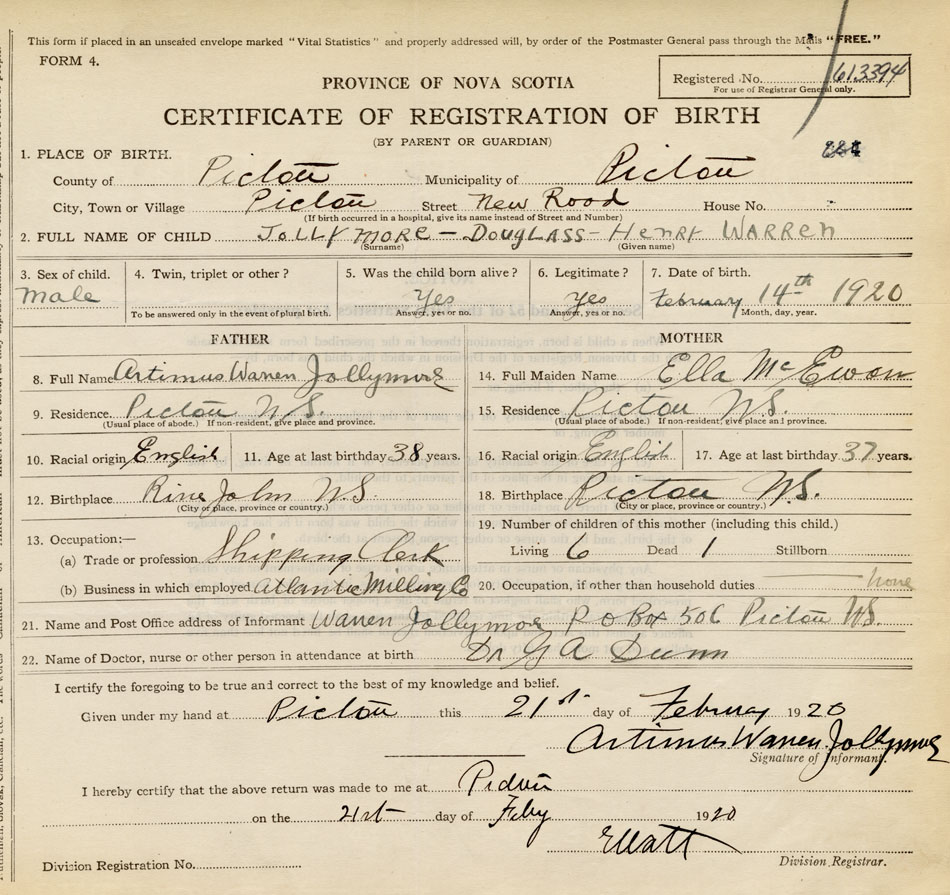 This form if placed in an unsealed envelope marked "Vital Statistics" and properly addressed will, by order of the Postmaster General pass through the Mails "FREE."
FORM 4.
Registered No. 613394
For use of Registrar General only.
PROVINCE OF NOVA SCOTIA
CERTIFICATE OF REGISTRATION OF BIRTH
(BY PARENT OR GUARDIAN)
1. PLACE OF BIRTH.
County of Pictou Municipality of Pictou
City, Town or Village Pictou Street New Road House No.
(If birth occurred in a hospital, give its name instead of Street and Number)
2. FULL NAME OF CHILD JOLLYMORE - DOUGLASS - HENRY WARREN
(Surname) (Given name)
3. Sex of child. 4. Twin, triplet or other? 5. Was the child born alive? 6. Legitimate? 7. Date of birth.
Male Yes Yes February 14th 1920
To be answered only in the event of plural birth. Answer, yes or no. Answer, yes or no. Month, day, year.
FATHER MOTHER
8. Full Name Artimus Warren Jollymore 14. Full Maiden Name Ella McEwan
9. Residence. Pictou N.S. 15. Residence Pictou N.S.
(Usual place of abode.) If non-resident, give place and province. (Usual place of abode.) If non-resident, give place and province.
10. Racial origin English 11. Age at last birthday 38 years. 16. Racial origin English 17. Age at last birthday 37 years.
12. Birthplace River John N.S. 18. Birthplace Pictou N.S.
(City or place, province or country.) (City or place, province or country.)
13. Occupation:— 19. Number of children of this mother (including this child.)
(a) Trade or profession Shipping Clerk Living 6 Dead 1 Stillborn
(b) Business in which employed Atlantic Milling Co 20. Occupation, if other than household duties none
21. Name and Post Office address of Informant Warren Jollymore P O Box 506 Pictou N.S.
22. Name of Doctor, nurse or other person in attendance at birth Dr G A Dunn
I certify the foregoing to be true and correct to the best of my knowledge and belief.
Given under my hand at Pictou this 21st day of February 1920
Artimus Warren Jollymore
Signature of Informant.
I hereby certify that the above return was made to me at Pictou
on the 21st day of Feby 1920
Watt
Division Registration No. Division Registrar.